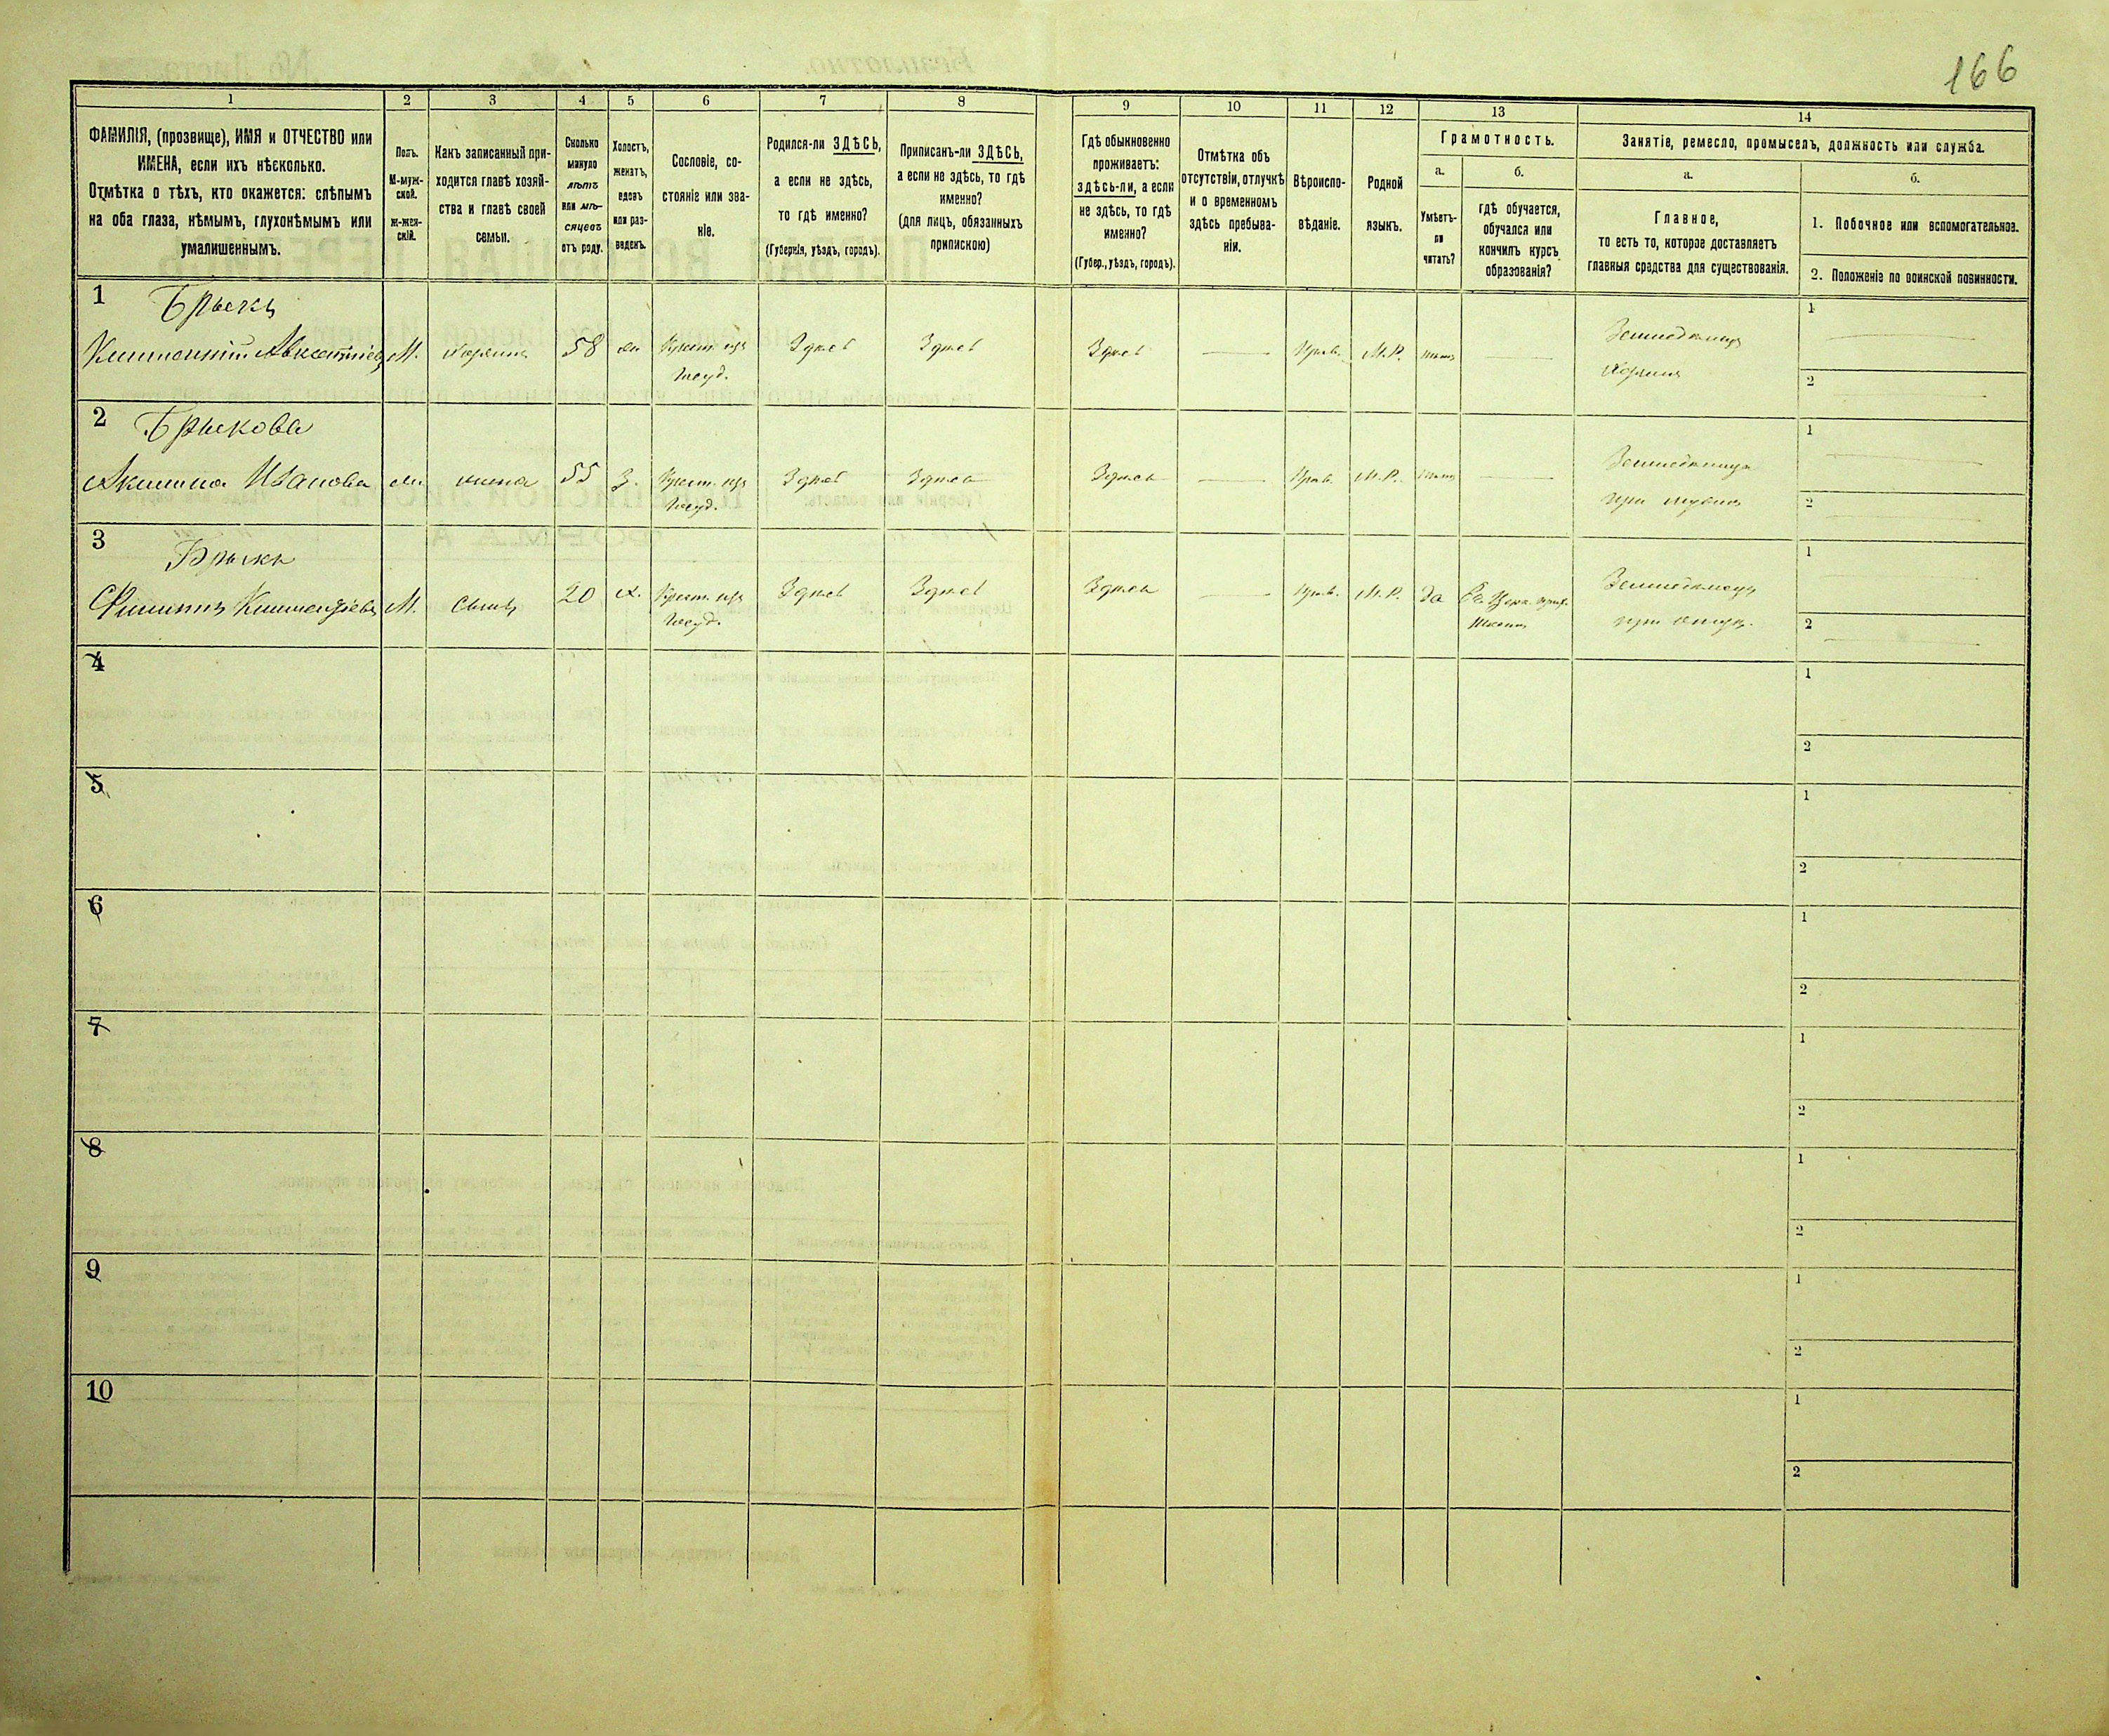 166
1 2 3 4 5 6 7 8 9 10 11 12 13 14
ФАМИЛІЯ, (прозвище), ИМЯ и ОТЧЕСТВО или
ИМЕНА, если ихъ нѣсколько.
Отмѣтка о тѣхъ, кто окажется: слѣпымъ
на оба глаза, нѣмымъ, глухонѣмымъ или
умалишеннымъ.
Полъ.
М-муж-
ской.
ж-жен-
скій.
Какъ записанный при-
ходится главѣ хозяй-
ства и главѣ своей
семьи.
Сколько
минуло
лѣтъ
или мѣ-
сяцевъ
отъ роду.
Холостъ,
женатъ,
вдовъ
или раз-
веденъ.
Сословіе, со-
стояніе или зва-
ніе.
Родился-ли ЗДѢСЬ,
а если не здѣсь,
то гдѣ именно?
(Губернія, уѣздъ, городъ).
Приписанъ-ли ЗДѢСЬ,
а если не здѣсь, то гдѣ
именно?
(для лицъ, обязанныхъ
припискою)
Гдѣ обыкновенно
проживаетъ:
здѣсь-ли, а если
не здѣсь, то гдѣ
именно?
(Губер., уѣздъ, городъ).
Отмѣтка объ
отсутствіи, отлучкѣ
и о временномъ
здѣсь пребыва-
ніи.
Вѣроиспо-
вѣданіе.
Родной
языкъ.
Грамотность.
а.
Умѣетъ-
ли
читать?
б.
гдѣ обучается,
обучался или
кончилъ курсъ
образованія?
Занятіе, ремесло, промыселъ, должность или служба.
а.
Главное,
то есть то, которое доставляетъ
главныя средства для существованія.
б.
1. Побочное или вспомогательное.
2. Положеніе по воинской повинности.
1
Брыкъ
М. хозяинъ 58 жн Крест. изъ
Госуд.
Здѣсь Здѣсь Здѣсь Прав. М.Р. нѣтъ
Земледѣлецъ
Хозяинъ
1
2
2
Брыкова
Акилина Иванова жн. жена 55 З. Крест. изъ
Госуд.
Здѣсь Здѣсь Здѣсь Прав. М.Р. нѣтъ
при мужѣ
1
2
3
Брыкъ
Филиппъ М. сынъ 20 х. Крест. изъ
Госуд.
Здѣсь Здѣсь Здѣсь Прав. М.Р. да
Земледѣлецъ
при отцѣ.
1
2
4
1
2
5
1
2
6
1
2
7
1
2
8
1
2
9
1
2
10
1
2